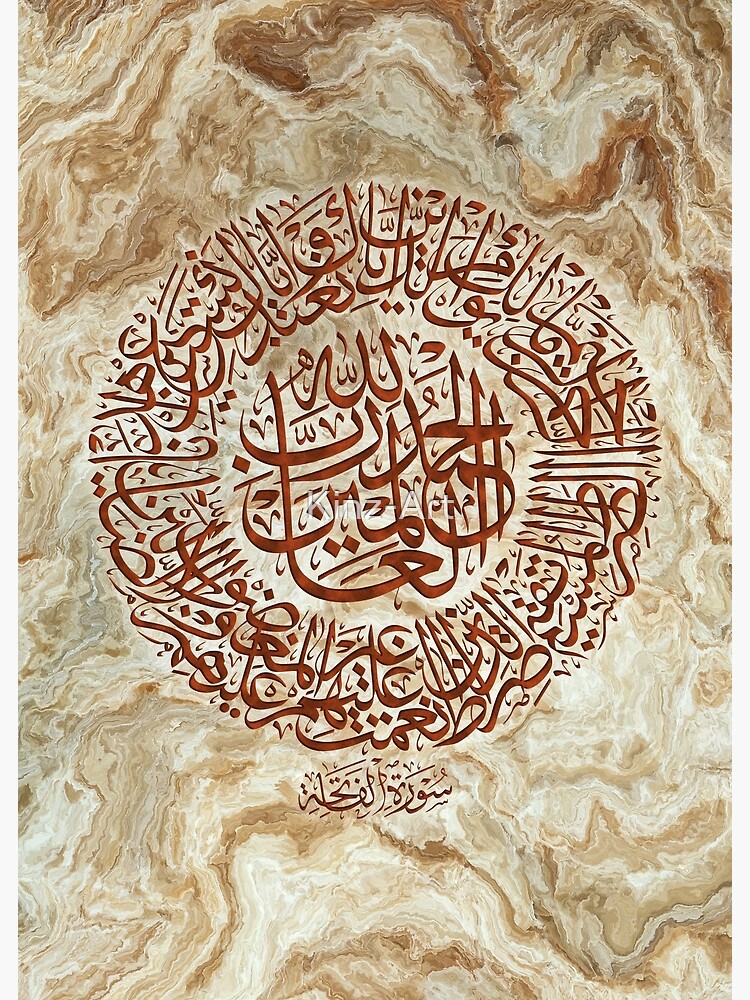 الحمد لله رب العالمين
الرحمن الرحيم مالك يوم الدين إياك نعبد وإياك نستعين اهدنا الصراط المستقيم صراط الذين أنعمت عليهم غير المغضوب عليهم ولا الضالين
سورة الفاتحة
Kinz-Art